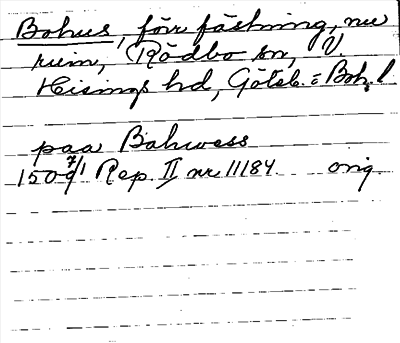 Bohus, förr fästning, nu
ruin, Rödbo sn, V.
Hisings hd, Göteb. = Boh. l
paa Bahwess
1509 7/1 Rep. II nr 11184 orig.